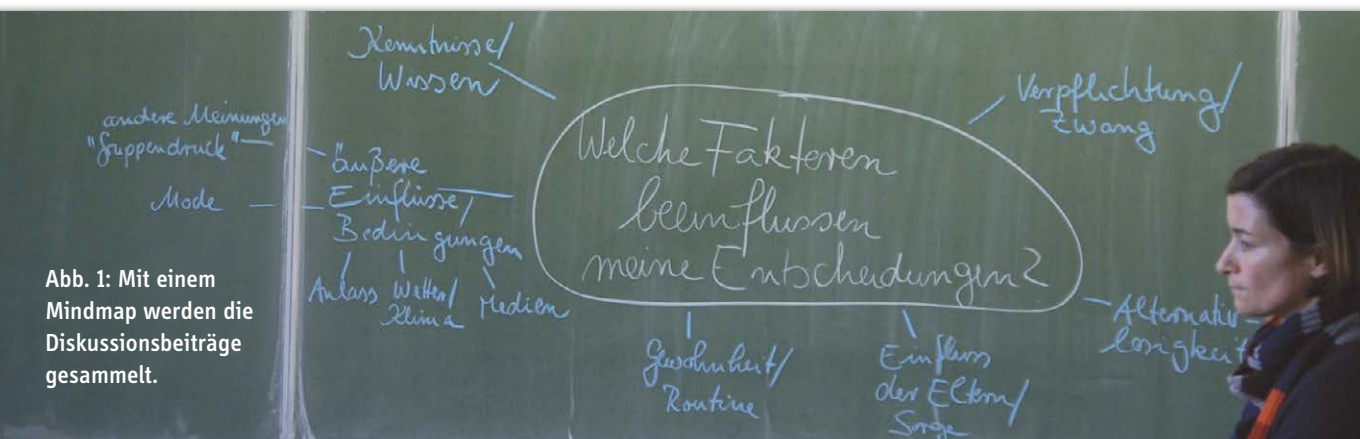 Kenntnisse/
Wissen
andere Meinungen
"Gruppendruck"
Mode
äußere
Einflüsse/
Bedingungen
Anlass
Wetter/
Klima
Medien
Welche Faktoren
beeinflussen
meine Entscheidungen?
Verpflichtung/
Zwang
Alternativ-
losigkeit
Gewohnheit/
Routine
Einfluss
der Eltern/
Sorge
Abb. 1: Mit einem
Mindmap werden die
Diskussionsbeiträge
gesammelt.